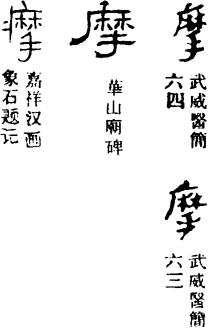 摩
武威醫簡
六四
摩
武威醫簡
六三
摩
華山廟碑
摩
嘉祥汉画
象石题记